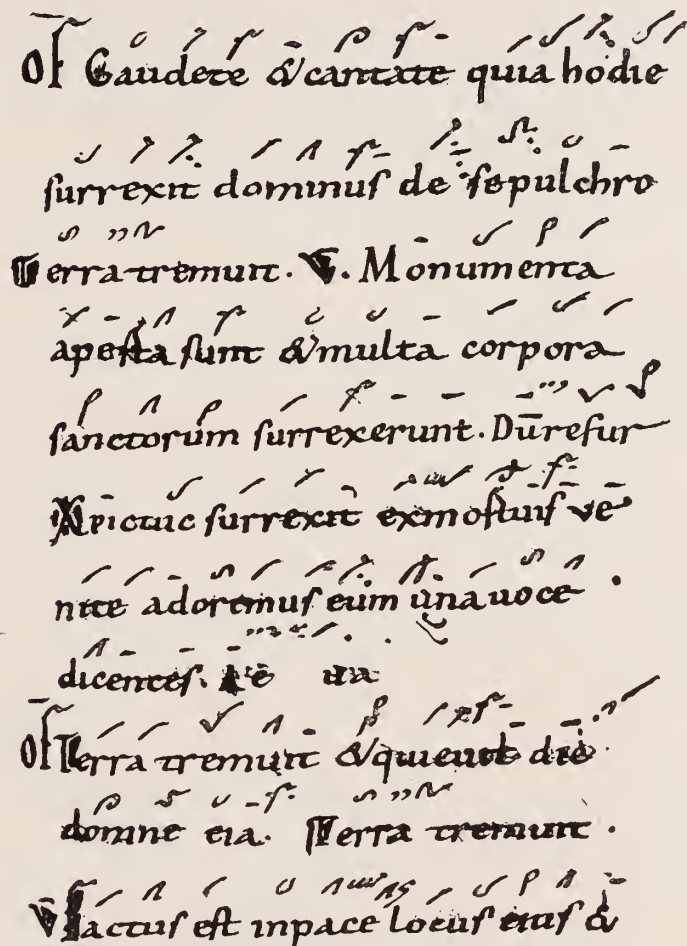 Of Gaudete & cantate quia hodie
surrexit dominus de sepulchro
Terra tremuit. V. Monumenta
aperta sunt & multa corpora
sanctorum surrexerunt. Dūresur
Xpictuc surrexit exmortuis ve
nite adoremus eum una uoce
dicentes.
Of Terra tremuit & quieuit
domne eia. Terra tremuit.
V Factus est inpace locus eius &